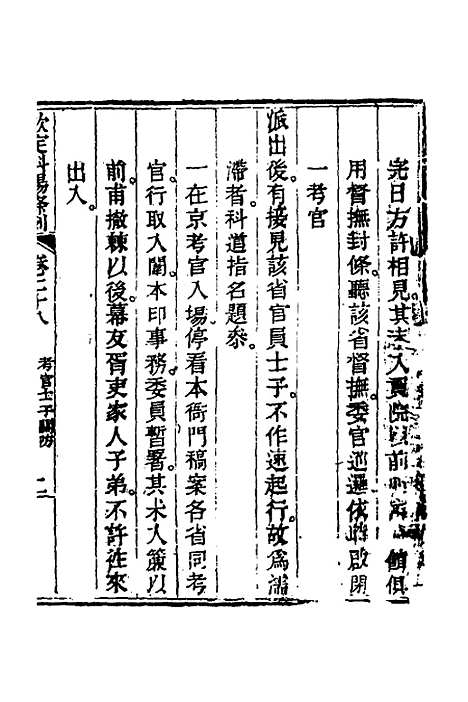 完日方許相見其未入貢院前所寓館俱
用督撫封條聽該省督撫委官巡邏依時啟閉
一考官
派出後有接見該省官員士子不作速起行故爲濡
滯者科道指名題叅
一在京考官入場停看本衙門稿案各省同考
官行取入闈本印事務委員暫署其未入簾以
前甫撤棘以後幕友胥吏家人子弟不許往來
出入
欽定科場條例 卷二十八 考官士子關防 二